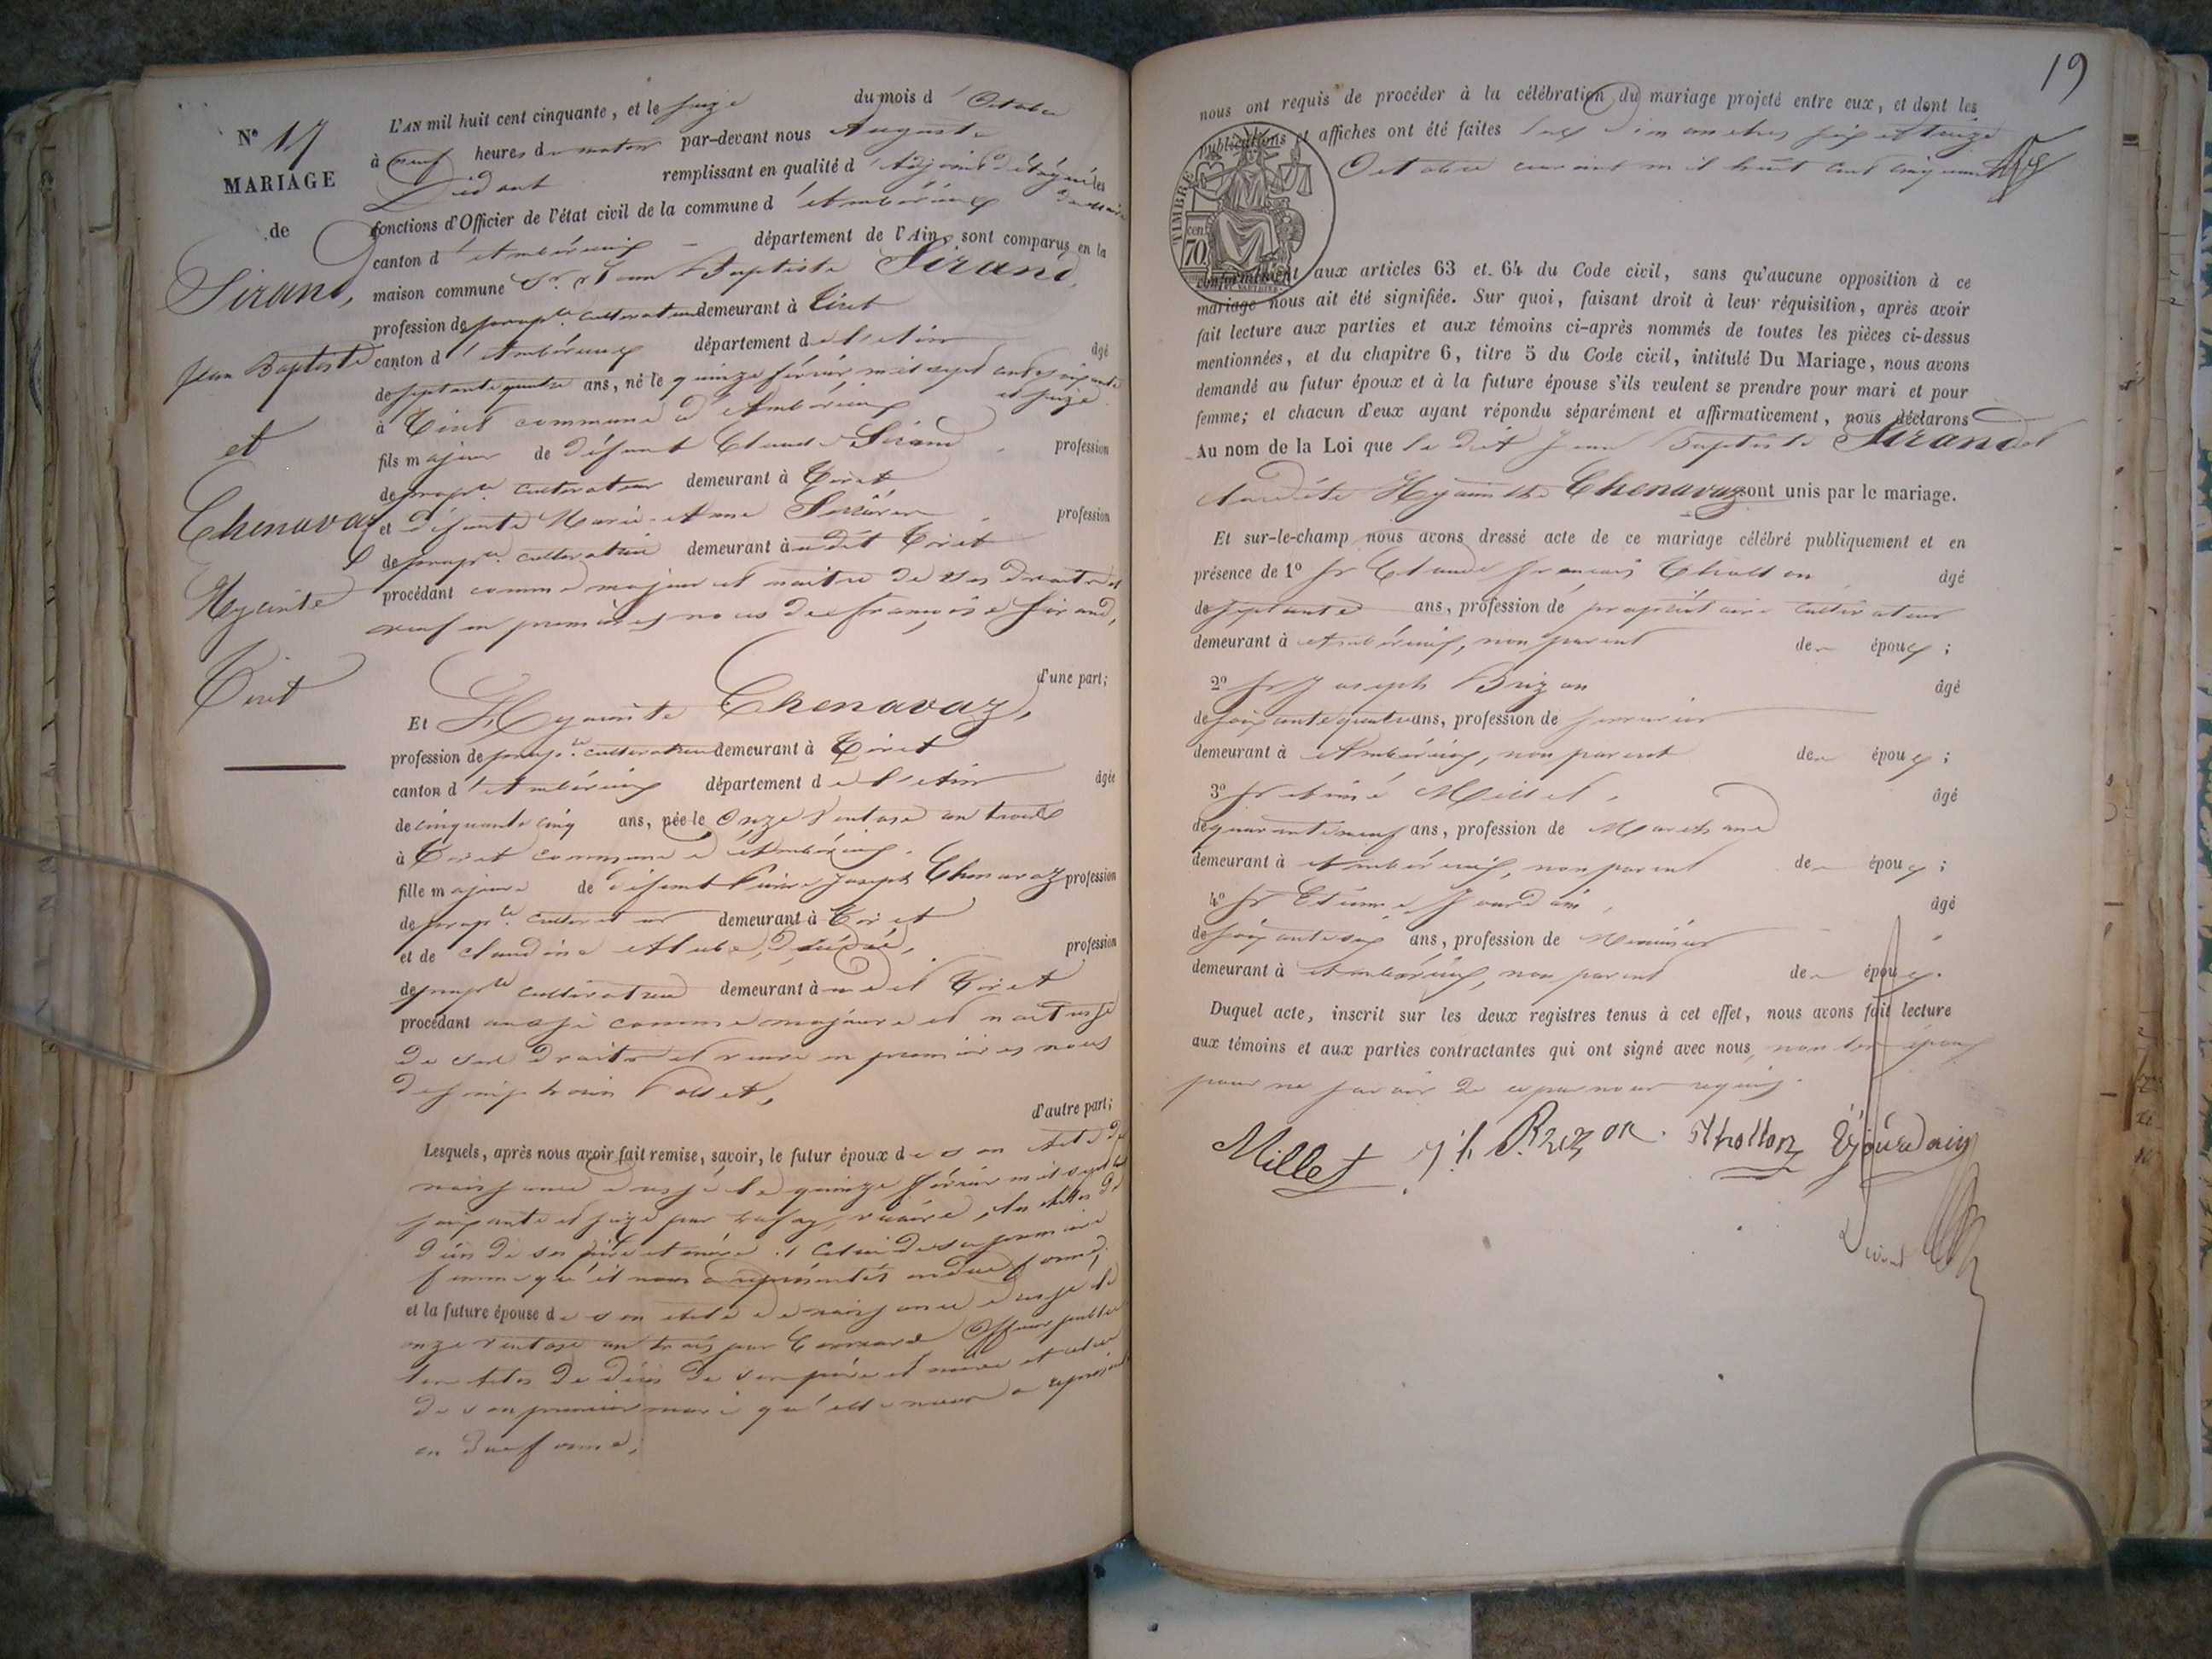 N° 17
MARIAGE
de
Sirand,
Jean Baptiste
et
Chenavaz
Hyacinte
Tiret
L'AN mil huit cent cinquante, et le seize du mois d'Octobre
à neuf heures du matin par-devant nous Auguste
Didant remplissant en qualité d'Adjoint délégué les
fonctions d'Officier de l'état civil de la commune d'Ambérieux
canton d'Ambérieux département de l'Ain, sont comparus en la
maison commune Sr. Jean Baptiste Sirand,
profession de prop.re cultivateur demeurant à Tiret
canton d'Ambérieux département de l'Ain âgé
de septante quatre ans, né le quinze février mil sept cent soixante
et seize
à Tiret commune d'Ambérieux
fils majeur de défunt Claude Sirand, profession
de prop.re cultivateur demeurant à Tiret
et défunte Marie-Anne profession
de prop.re cultivatrice demeurant à udit Tiret
procédant comme majeur et maître de ses droits et
veuf en premières noces de françoise Sirand,
d'une part;
Et Hyacinte Chenavaz,
profession de prop.re cultivatrice demeurant à Tiret
canton d'Ambérieux département de l'Ain âgée
de cinquante cinq ans, née le Onze Ventose an trois
à Tiret commune d'Ambérieux.
fille majeure de défunt Pierre Joseph Chenavaz profession
de prop.re cultivateur demeurant à Tiret
et de Claudine profession
de prop.re cultivatrice demeurant à udit Tiret
procédant aussi comme majeure et maitresse
de ses droits et veuve en premières noces
de
d'autre part;
Lesquels, après nous avoir fait remise, savoir, le futur époux de son Acte de
naissance dressé le quinze février mil sept cent
soixante et seize par vicaire, les Actes de
décès de ses père et mère et celui de sa première
femme qu'il nous a représentés en due forme,
et la future épouse de son Acte de naissance dressé le
onze ventose an trois par Officier public
les Actes de décès de ses père et mère et celui
de son premier mari qu'elle nous a représentés
en due forme,
19
nous ont requis de procéder à la célébration du mariage projeté entre eux, et dont les
publications et affiches ont été faites les dimanches six et treize
Octobre courant mil huit cent cinquante
TIMBRE
cent
70
conformément aux articles 63 et 64 du Code civil, sans qu'aucune opposition à ce
mariage nous ait été signifiée. Sur quoi, faisant droit à leur réquisition, après avoir
fait lecture aux parties et aux témoins ci-après nommés de toutes les pièces ci-dessus
mentionnées, et du chapitre 6, titre 5 du Code civil, intitulé Du Mariage, nous avons
demandé au futur époux et à la future épouse s'ils veulent se prendre pour mari et pour
femme; et chacun d'eux ayant répondu séparément et affirmativement, nous déclarons
Au nom de la Loi que le dit Jean Baptiste Sirand et
la dite Hyacinthe Chenavaz sont unis par le mariage.
Et sur-le-champ nous avons dressé acte de ce mariage célébré publiquement et en
présence de 1° Sr Claude françois Thollon âgé
de septante ans, profession de propriétaire cultivateur
demeurant à Ambérieux, non parent des époux;
2° Sr Joseph Brizon âgé
de soixante quatre ans, profession de serrurier
demeurant à Ambérieux, non parent des époux;
3° Sr Aimé Millet, âgé
de quarante neuf ans, profession de Marchand
demeurant à Ambérieux, non parent des époux;
4° Sr Etienne Jourdain, âgé
de soixante six ans, profession de Menuisier
demeurant à Ambérieux, non parent des époux.
Duquel acte, inscrit sur les deux registres tenus à cet effet, nous avons fait lecture
aux témoins et aux parties contractantes qui ont signé avec nous, non les époux
pour ne savoir de ce par nous requis.
Millet Brizon Thollon E Jourdain
Didant